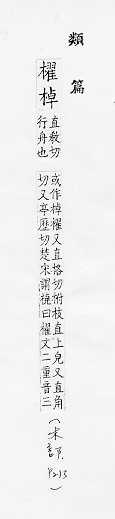 類篇
櫂棹
直敎切
行舟也
或作棹櫂又直格切樹枝直上皃又直角
切又亭歷切楚宋謂橈曰櫂文二重音三